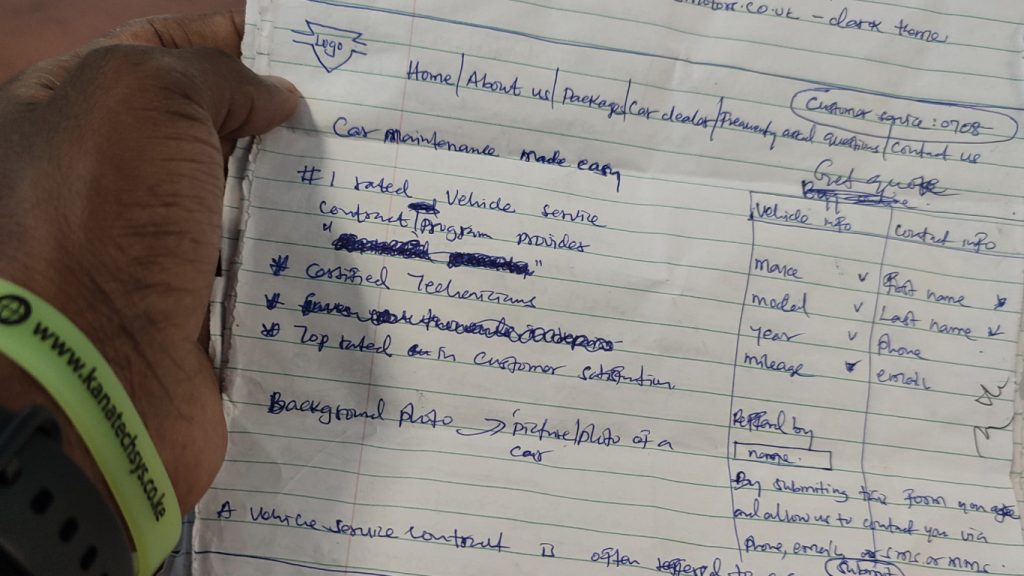 motors.co.uk - dark theme
Logo
Home | About us | Packages | Car dealer | Frequently asked questions | Contact us
Customer service: 0708-
Car maintenance made easy
# 1 rated Vehicle service
contract / program provider
* Certified Technicians
* Top rated in customer satisfaction
Background photo → picture/photo of a
car
A vehicle service contract is often
Get quote
Vehicle info | contact info
make | First name
model | Last name
year | Phone
mileage | email
Reffered by
name.
By submitting the Form you agree
and allow us to contact you via
Phone, email, or sms. or mms.
Submit
www.kanatechsys.co.ke